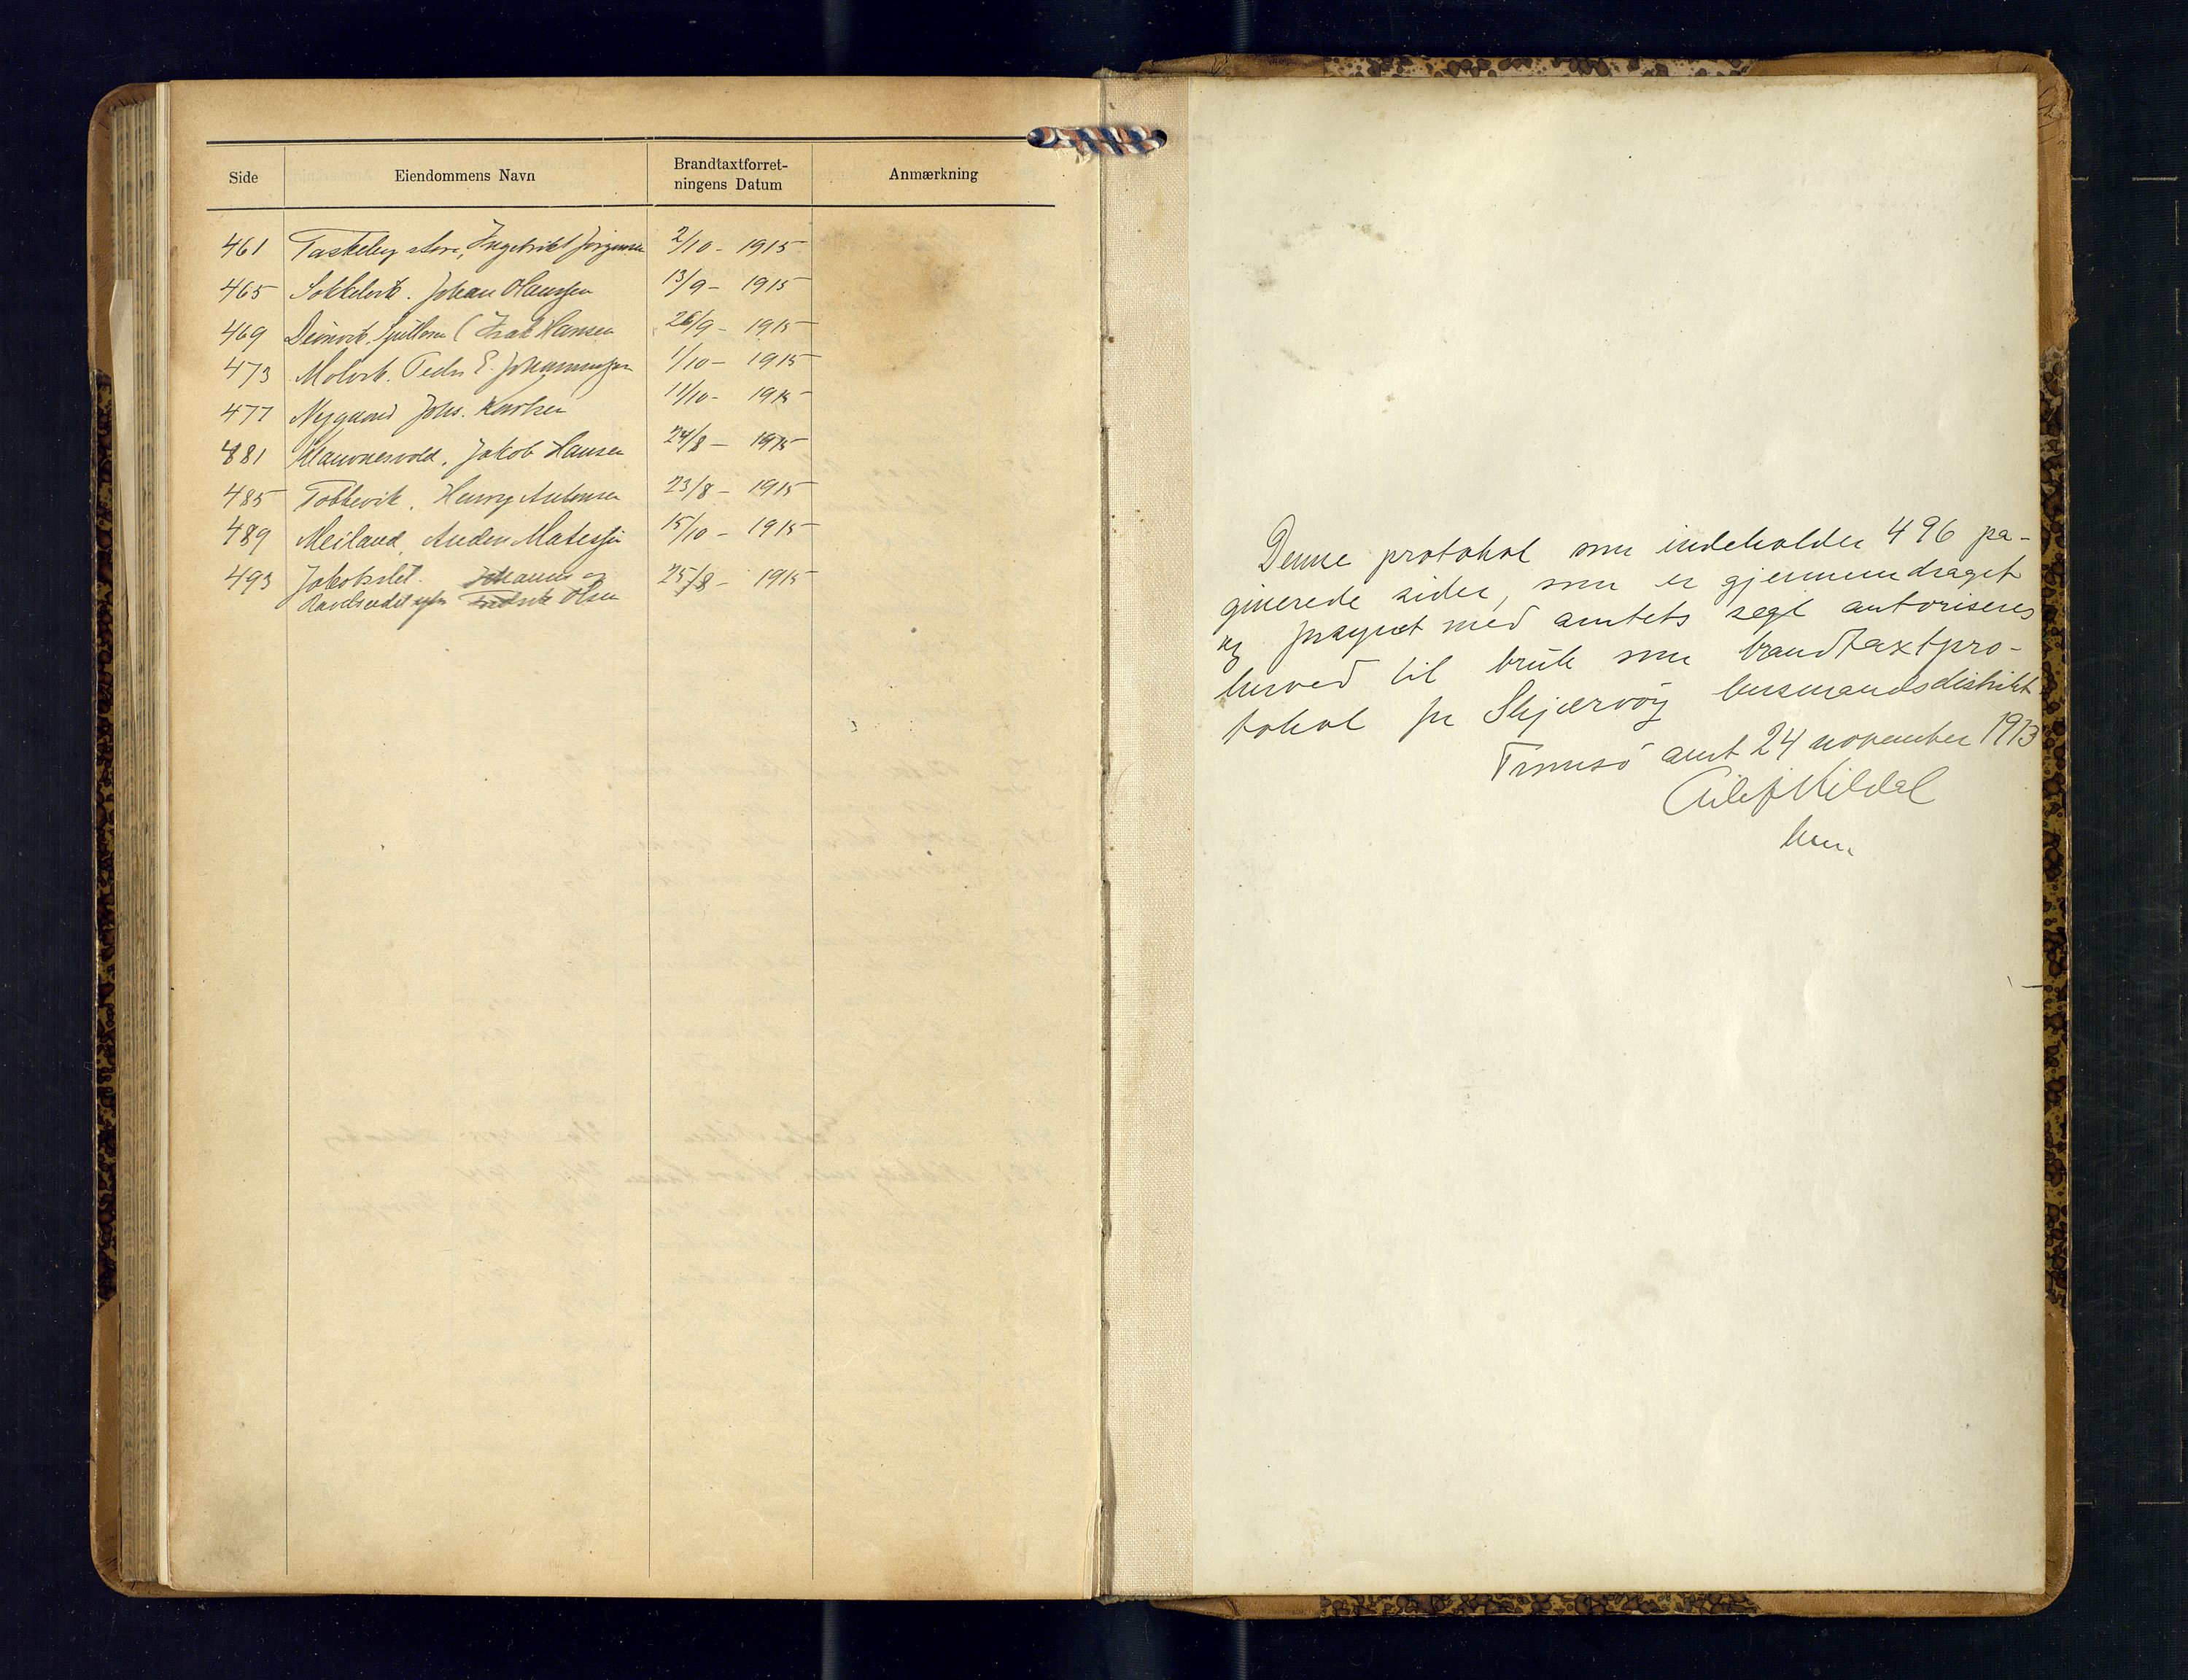 Side Eiendommens Navn Brandtaxtforret-ningens Datum Anmærkning
461 Taskeby store, Ingebrikt Jørgensen 2/10 - 1915
465 Sokkelvik. Johan Olaussen 13/9 - 1915
469 Isak Hansen 26/9 - 1915
473 Molvik. Peder E. Johannessen 1/10 - 1915
477 Nygaard Johs. Karlsen 11/10 - 1915
481 Klauvnesvold. Jakob Hansen 24/8 - 1915
485 Tobbevik. Henry Antonsen 23/8 - 1915
489 Meiland, Anders 15/10 - 1915
493 Jakobslet. Johannes og 25/8 - 1915
Fredrik Olsen
Denne protokol som indeholder 496 pa-
ginerede sider, som er gjennemdraget
og forsynet med amtets segl autoriseres
herved til bruk som brandtaxtpro-
tokol for Skjærvøy lensmandsdistrikt
Tromsö amt 24 november 1913